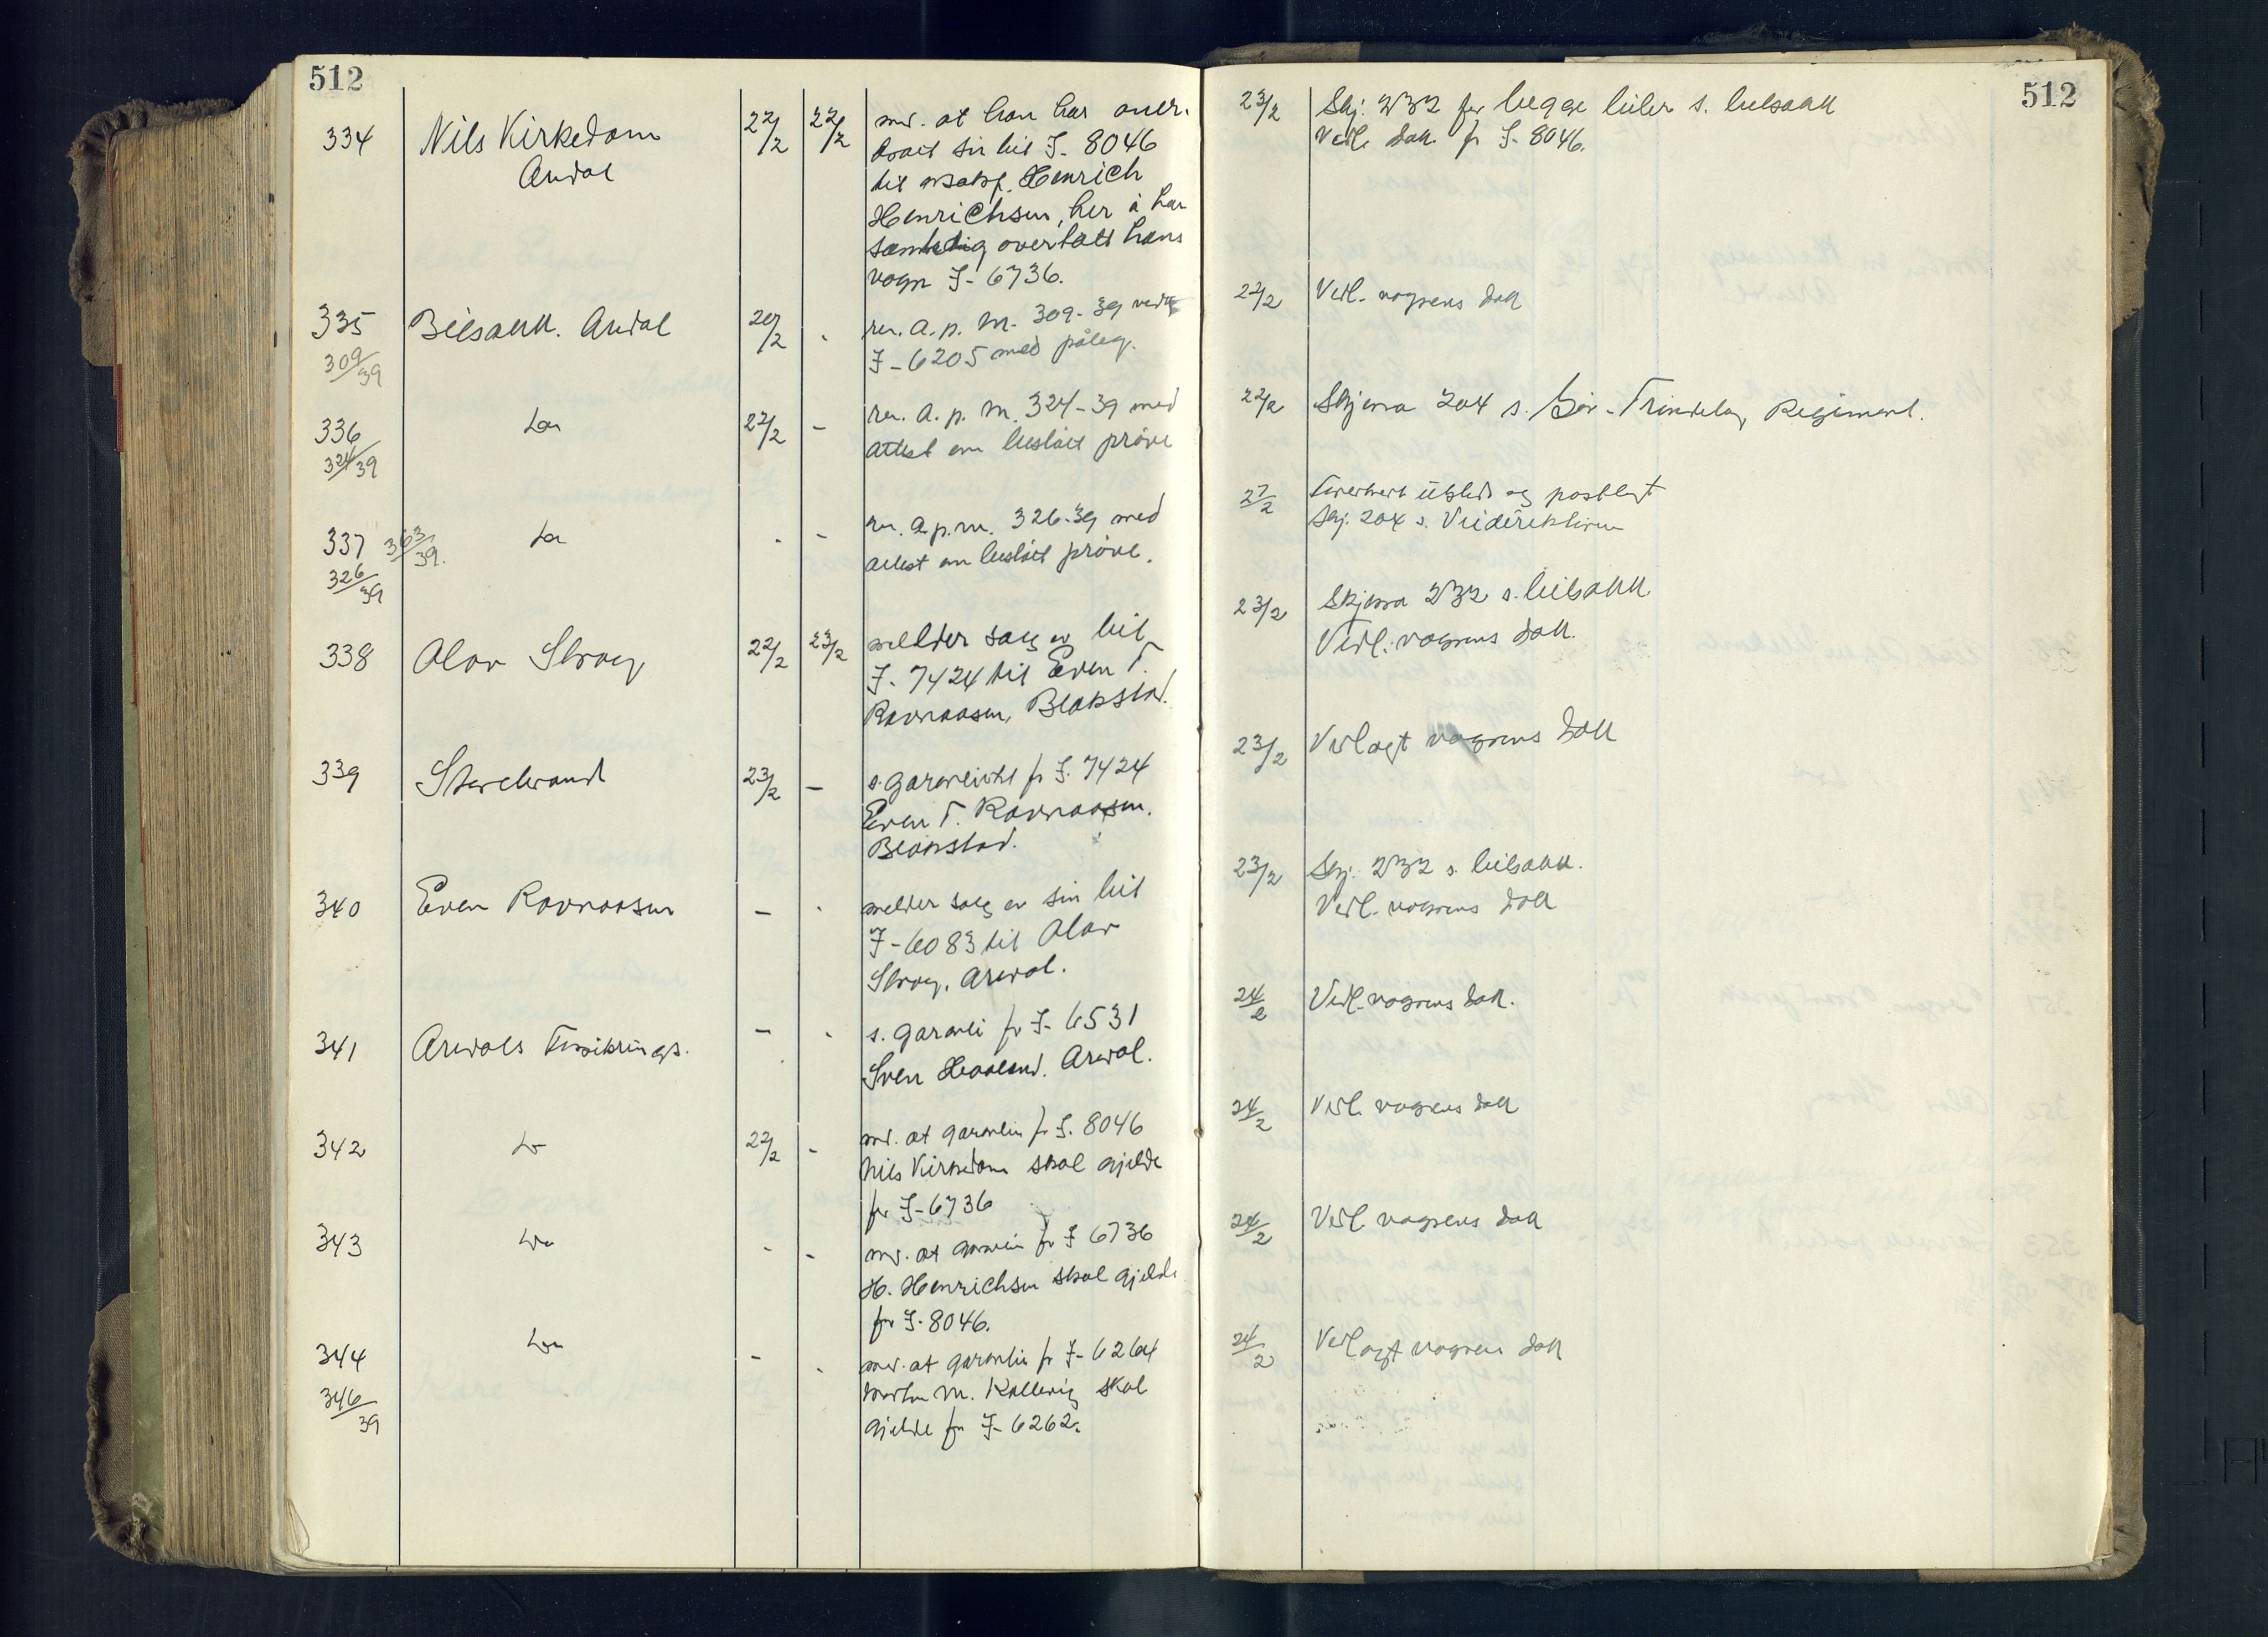 512
334 Nils Kirkedam 22/2 22/2 md. at han har over-
Arendal dratt sin bil I- 8046
til Henrich
Henrichsen, her å har
samtidig overtatt hans
vogn I- 6736.
335 Bilsakk. Arendal 20/2 - ret. a. p. m. 309-39 vedr
309/39 I-6205 med påteg.
336 Do 22/2 - ret. a. p. m. 324-39 med
324/39 attest om bestått prøve
337 363/39. Do - - ret. a.p.m. 326-39 med
326/39 attest om bestått prøve.
338 Olav Skrog 22/2 23/2 melder salg av bil
I- 7424 til Even T.
Ravnaasen, Blakstad.
339 Storebrand 23/2 - s. garantibevis for I. 7424
Even T. Ravnaasen.
Blakstad.
340 Even Ravnaasen - - melder salg av sin bil
I-6083 til Olav
Skrog, Arendal.
341 Arendals Forsikrings. - - s. garanti for I- 6531
Sven Arendal.
342 Do 22/2 - md. at garantien for I. 8046
Nils Kirkedam skal gjelde
for I-6736
343 Do - - md. at garantien for I 6736
H. Henrichsen skal gjelde
for I-8046.
344 Do - - md. at garantien for I- 6264
346/39 M. Kallevig skal
gjelde for I- 6262.
512
23/2 Skj. 232 for begge biler s. bilsakk
Vedl. dok. for I- 8046.
22/2 Vedl. vognens dok
22/2 Skjema 204 s. Sør-Trøndelag Regiment.
27/2 Førerkort utsted og postlagt
Skj. 204 s. Veidirektøren
23/2 Skjema 232 s. bilsakk.
Vedl. vognens dok.
23/2 Vedlagt vognens dok
23/2 Skj. 232 s. bilsakk.
Vedl. vognens dok
24/2 Vedl. vognens dok.
24/2 Vedl. vognens dok
24/2 Vedl. vognens dok
24/2 Vedlagt vognens dok